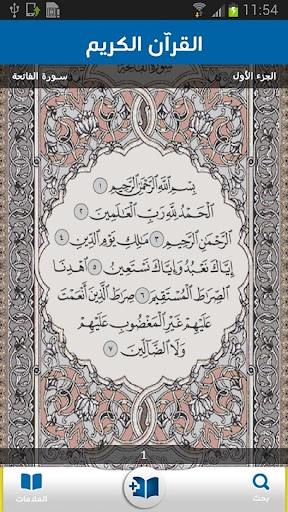 11:54
القرآن الكريم
الجزء الأول
سورة الفاتحة
بِسْمِ ٱللَّهِ ٱلرَّحْمَٰنِ ٱلرَّحِيمِ ١
ٱلْحَمْدُ لِلَّهِ رَبِّ ٱلْعَٰلَمِينَ ٢
ٱلرَّحْمَٰنِ ٱلرَّحِيمِ ٣ مَٰلِكِ يَوْمِ ٱلدِّينِ ٤
إِيَّاكَ نَعْبُدُ وَإِيَّاكَ نَسْتَعِينُ ٥ ٱهْدِنَا
ٱلصِّرَٰطَ ٱلْمُسْتَقِيمَ ٦ صِرَٰطَ ٱلَّذِينَ أَنْعَمْتَ
عَلَيْهِمْ غَيْرِ ٱلْمَغْضُوبِ عَلَيْهِمْ
وَلَا ٱلضَّآلِّينَ ٧
1
بحث
العلامات